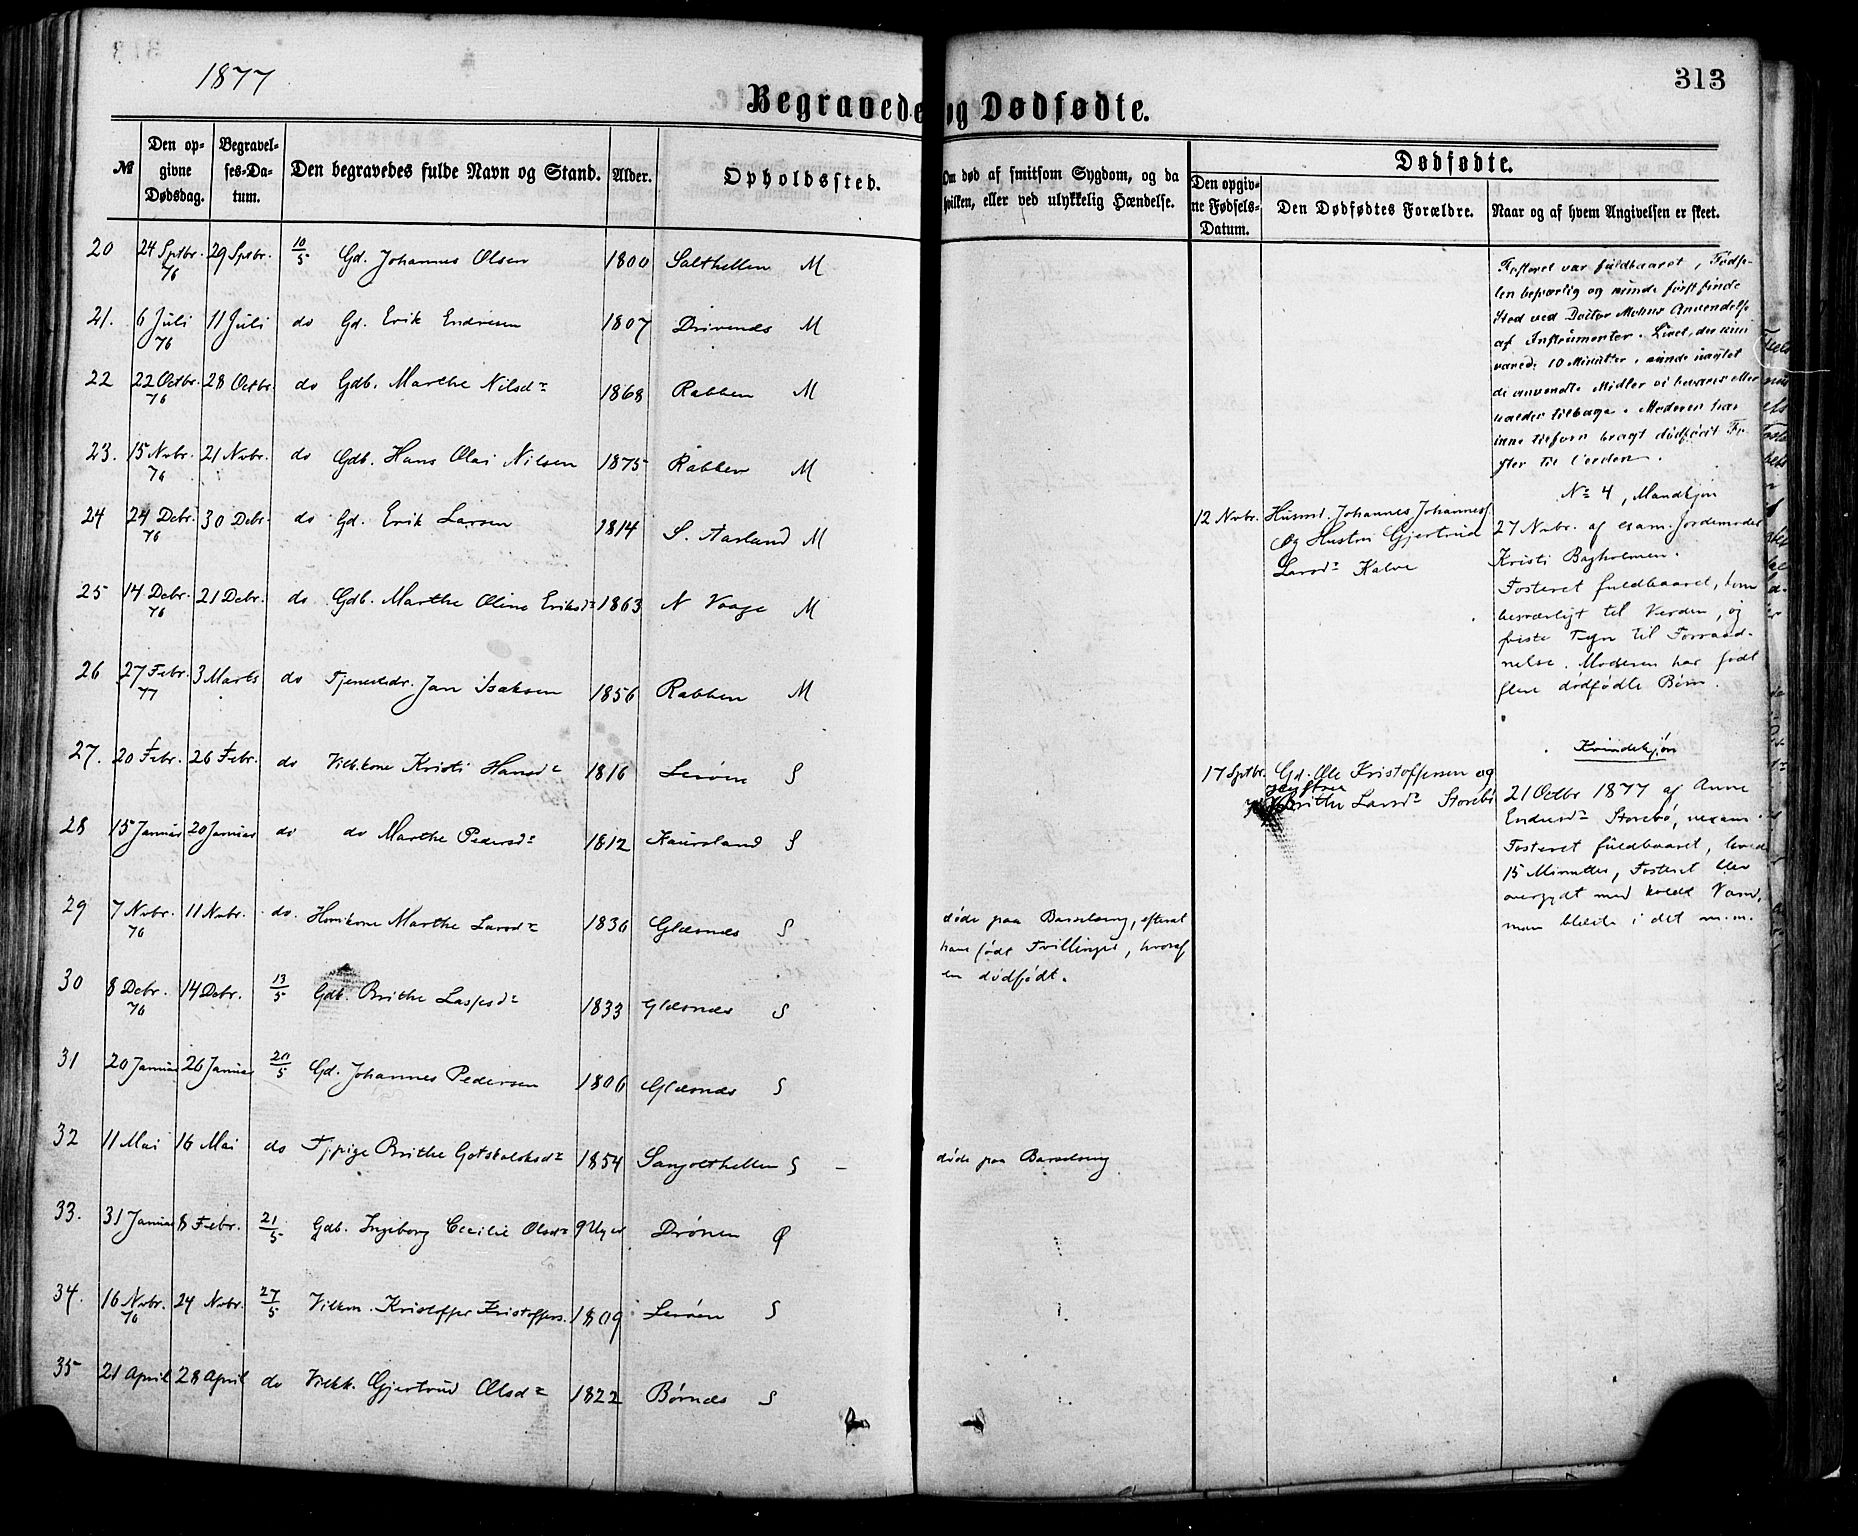 1877
313
Begravede og Dødfødte.
№
Den opgivne Dødsdag.
Begravelses-Datum.
Den begravedes fulde Navn og Stand.
Alder.
Opholdssted.
Om død af smitsom Sygdom, og da
hvilken, eller ved ulykkelig Hændelse.
Dødfødte.
Den opgivne Fødsels-Datum.
Den Dødfødtes Forældre.
Naar og af hvem Angivelsen er skeet.
20 24 Sptbr. 76 29 Sptbr. 10/5 Gd. Johannes Olsen 1800 Salthellen M
21. 6 Juli 76 11 Juli do Gd. Erik Endresen 1807 Drivenæs M
22 22 Octbr. 76 28 Octbr. do Gdb. Marthe Nilsdr 1868 Rabben M
23. 15 Nvbr. 76 21 Nvbr. do Gdb. Hans Olai Nilsen 1875 Rabben M
24 24 Debr. 76 30 Debr. do Gd. Erik Larsen 1814 S. Aarland M
25 14 Debr. 76 21 Debr. do Gdb. Marthe Oline Eriksdr 1863 N Vaage M
26 27 Febr. 77 3 Marts do Tjenestedr. Jan Isaksen 1856 Rabben M
27. 20 Febr. 26 Febr. do Vilk.kone Kristi Hansdr 1816 Lerøen S
28 15 Januar 20 Januar do do Marthe Pedersdr 1812 Kaursland S
29 7 Nvbr. 76 11 Nvbr. do. Huskone Marthe Larsdr 1836 Glæsnæs S døde paa Barselseng, efterat
have født Tvillinger, hvoraf
en dødfødt.
30 8 Debr. 76 14 Debr. 13/5 Gdb. Brithe Laspesdr 1833 Glæsnæs S
31 20 Januar 26 Januar 20/5 Gd. Johannes Pedersen 1806 Glæsnæs S
32 11 Mai 16 Mai do Tj.pige Brithe Gotskalksdr 1854 S døde paa Barselseng
33. 31 Januar 8 Febr. 21/5 Gdb. Ingeborg Cecilie Olsdr 9 Uger Drønen Ø
34. 16 Nvbr. 76 24 Nvbr. 27/5 Vilkm. Kristoffer Kristoffers. 1809 Lerøen S
35 21 April 28 April do Vilkk. Gjertrud Olsdr 1822 Børnæs S
Fosteret var fuldbaaret, Fødse-
len besværlig og kunde først finde
Sted ved Doctor Mohns Anvendelse
af Instrumenter. Livet, der kun
varede 10 Minutter, kunde uagtet
de anvendte Midler ei bevares eller
kaldes tilbage. Moderen har
ikke tilforn bragt dødfødt Fo-
ster til Verden.
No 4, Mandkjøn
12 Nvbr. Husmd. Johannes Johanness.
og Hustru Gjertrud
Larsdr Kalve
27 Nvbr. af exam. Jordemoder
Kristi Bagholmen.
Fosteret fuldbaaret, kom
besværligt til Verden, og
viste Tegn til Forraad-
nelse. Moderen har født
flere dødfødte Børn.
Kvindekjøn
17 Sptbr. Gd. Ole Kristoffersen og
Hustru
Brithe Larsdr Storebø
21 Octbr 1877 af Anne
Endresdr Storebø, uexam.
Fosteret fuldbaaret, levede
15 Minutter, Fosteret blev
overgydt med koldt Vand,
man blæste i det m.m.